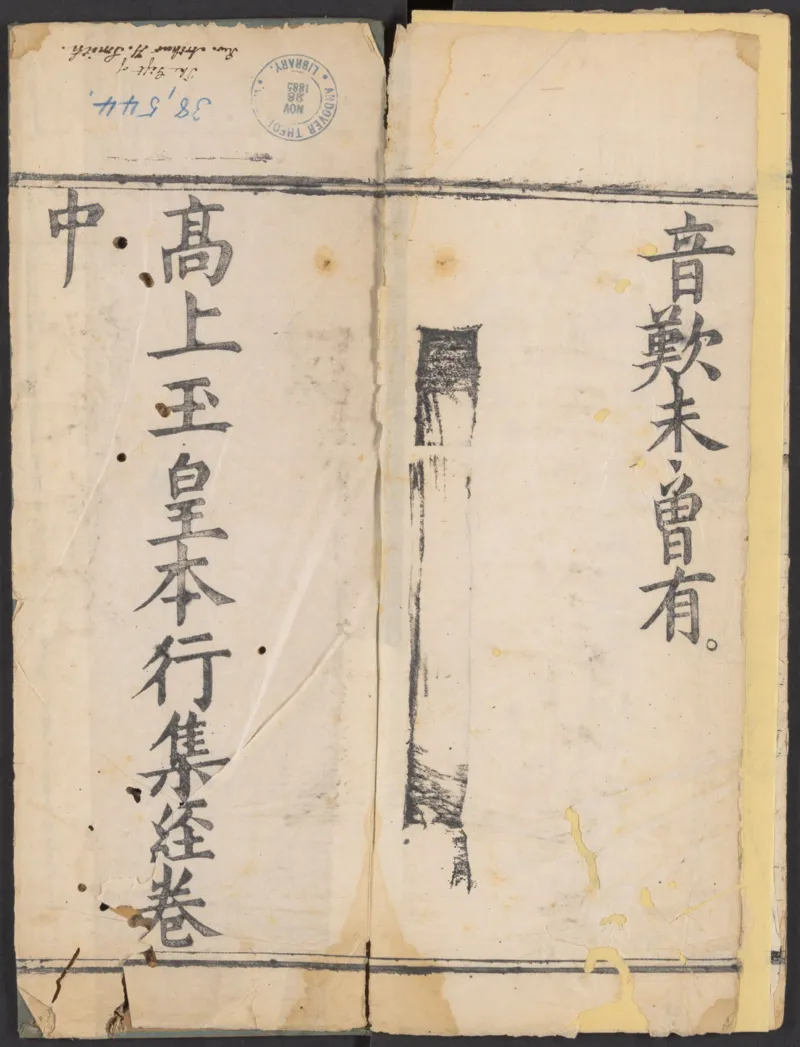 音歎未曾有。
髙上玉皇本行集経卷
中
The Gift of
Rev. Arthur H. Smith.
38,544.
ANDOVER
LIBRARY.
NOV
1885